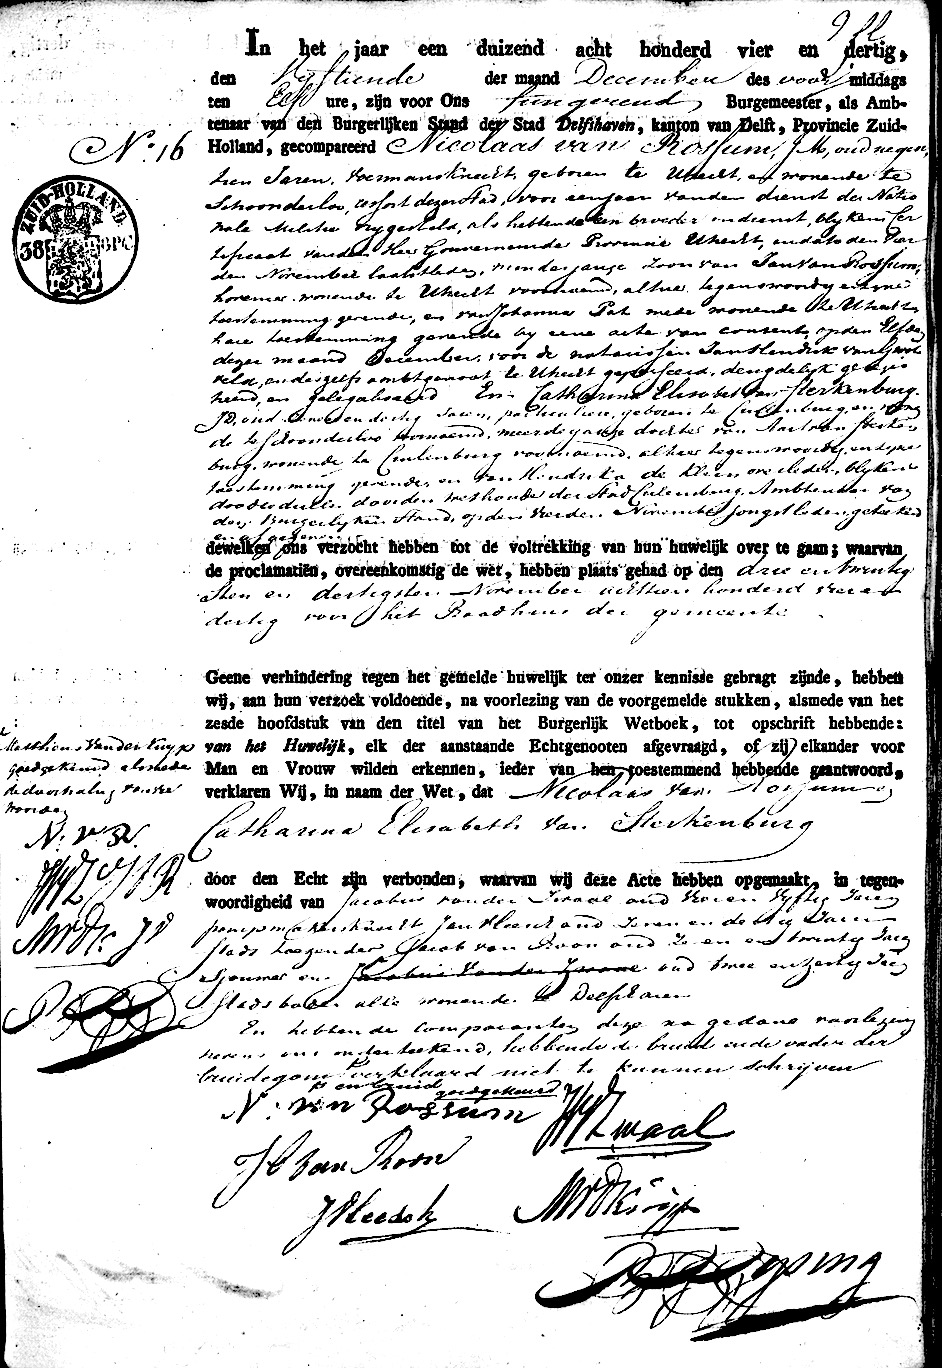 In het jaar een duizend acht honderd vier en dertig,
den Vyftiende der maand December des voor middags
ten Elf ure, zijn voor Ons fungerend Burgemeester, als Amb-
tenaar van den Burgerlijken Stand der Stad Delfshaven, kanton van Delft, Provincie Zuid-
No. 16
Holland, gecompareerd Nicolaas van Rossum, J M, oud negen
tien Jaren, voermansknecht, geboren te Utrecht, en wonende te
ZUID-HOLLAND
38
Schoonderloo, deser Stad, voor een jaar van den dienst der Natio
nale Militie vrygesteld, als hebbende een broeder in dienst, blykens Cer
tificaat van den Heer Gouverneur der Provincie Utrecht, in dato den
den November laatstleden, minderjarige Zoon van Jan van Rossum,
wonende te Utrecht voornoemd, alhier tegenswoordig en zyne
toestemming gevende, en van Johanna Pat mede wonende te Utrecht
hare toestemming gevende by eene acte van consent, op den Elfden
dezer maand December, voor de notarissen Jan Hendrik van
en deszelfs ambtgenoot te Utrecht gepasseerd, deugdelijk geregis
treerd, en gelegaliseerd En Catharina Elisabeth van Sterkenburg
JD, oud en dertig Jaren, particuliere, geboren te Culenburg, en wonen
de te Schoonderloo voornoemd, meerderjarige dochter van Aart van Sterken
burg, wonende te Culenburg voornoemd, alhier tegenswoordig, en zyne
toestemming gevende, en van Hendrika de Klein overleden, blykens
doodcedulle door den wethouder der Stad Culenburg, Ambtenaar van
den Burgerlyken Stand, op den Vierden November jongstleden getekend
dewelken ons verzocht hebben tot de voltrekking van hun huwelijk over te gaan; waarvan
de proclamatiën, overeenkomstig de wet, hebben plaats gehad op den drie en twintig
sten en dertigsten November achttien honderd vier en
dertig voor het Raadhuis der gemeente
Geene verhindering tegen het gemelde huwelijk ter onzer kennisse gebragt zijnde, hebben
wij, aan hun verzoek voldoende, na voorlezing van de voorgemelde stukken, alsmede van het
zesde hoofdstuk van den titel van het Burgerlijk Wetboek, tot opschrift hebbende:
van het Huwelijk, elk der aanstaande Echtgenooten afgevraagd, of zij elkander voor
Man en Vrouw wilden erkennen, ieder van hen toestemmend hebbende geantwoord,
verklaren Wij, in naam der Wet, dat Nicolaas van Rossum en
Catharina Elisabeth van Sterkenburg
Mattheus van der Kuyp
goedgekeurd alsmede
de doorhaling van twee
woorden
N. v R.
door den Echt zijn verbonden, waarvan wij deze Acte hebben opgemaakt, in tegen-
woordigheid van Jacobus van der Zwaal oud Zeven Vyftig Jaren
pompmakersknecht Jan Vleesch oud Zeven en dertig Jaren
Stads Jacob van Roon oud Zeven en twintig Jaren
Sjouwer en Jacobus van der Zwaal oud twee en Jaren
Stadsbode alle wonende te Delfshaven
En hebbende comparanten deze na gedane voorlezing
nevens ons onderteekend, hebbende de bruid en de vader der
bruidegom verklaard niet te kunnen schrijven
en bruid goedgekeurd
N. van Rossum
Zwaal
J C van Roon